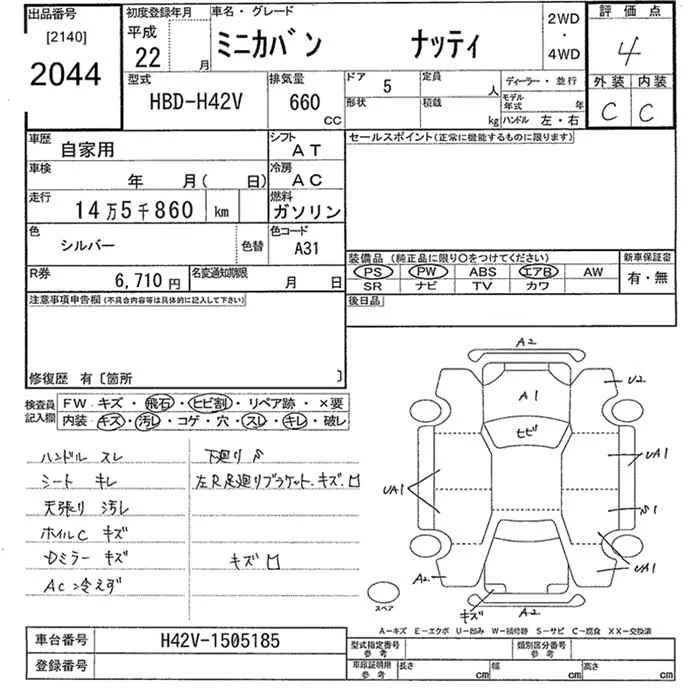 出品番号
[2140]
2044
初度登録年月
平成
22 月
車名・グレード
ミニカバン ナッティ
2WD
・
4WD
評価点
4
外装 内装
C C
型式
HBD-H42V
排気量
660
CC
ドア 5
形状
定員 人
積載 kg
ディーラー・並行
モデル年式 年
ハンドル 左・右
車歴
自家用
シフト
AT
車検
年 月( 日)
冷房
AC
走行
14万5千860 km
燃料
ガソリン
色
シルバー
色替
色コード
A31
R券
6,710 円
名変通知期限
月 日
セールスポイント(正常に機能するものに限ります)
装備品 (純正品に限り○をつけてください)
新車保証書
PS PW ABS エアB AW
SR ナビ TV カワ
有・無
後日品
注意事項申告欄(不具合内容等は具体的に記入して下さい)
修復歴 有〔箇所 〕
検査員記入欄
FW・キズ・飛石・ヒビ割・リペア跡・×要
内装・キズ・汚レ・コゲ・穴・スレ・キレ・破レ
ハンドル スレ
シート キレ
天張り 汚レ
ホイルC キズ
Dミラー キズ
AC冷えず
下廻り
左R足廻りブラケット、キズ、凹
キズ凹
A2
A1
U2
ヒビ
UA1
UA1
S1
UA1
A2
キズ
A2
スペア
A-キズ E-エクボ U-凹み W-補修跡 S-サビ C-腐食 XX-交換済
車台番号
H42V-1505185
登録番号
型式指定番号
参考
類別区分番号
参考
車庫証明用
参考
長さ cm
幅 cm
高さ cm